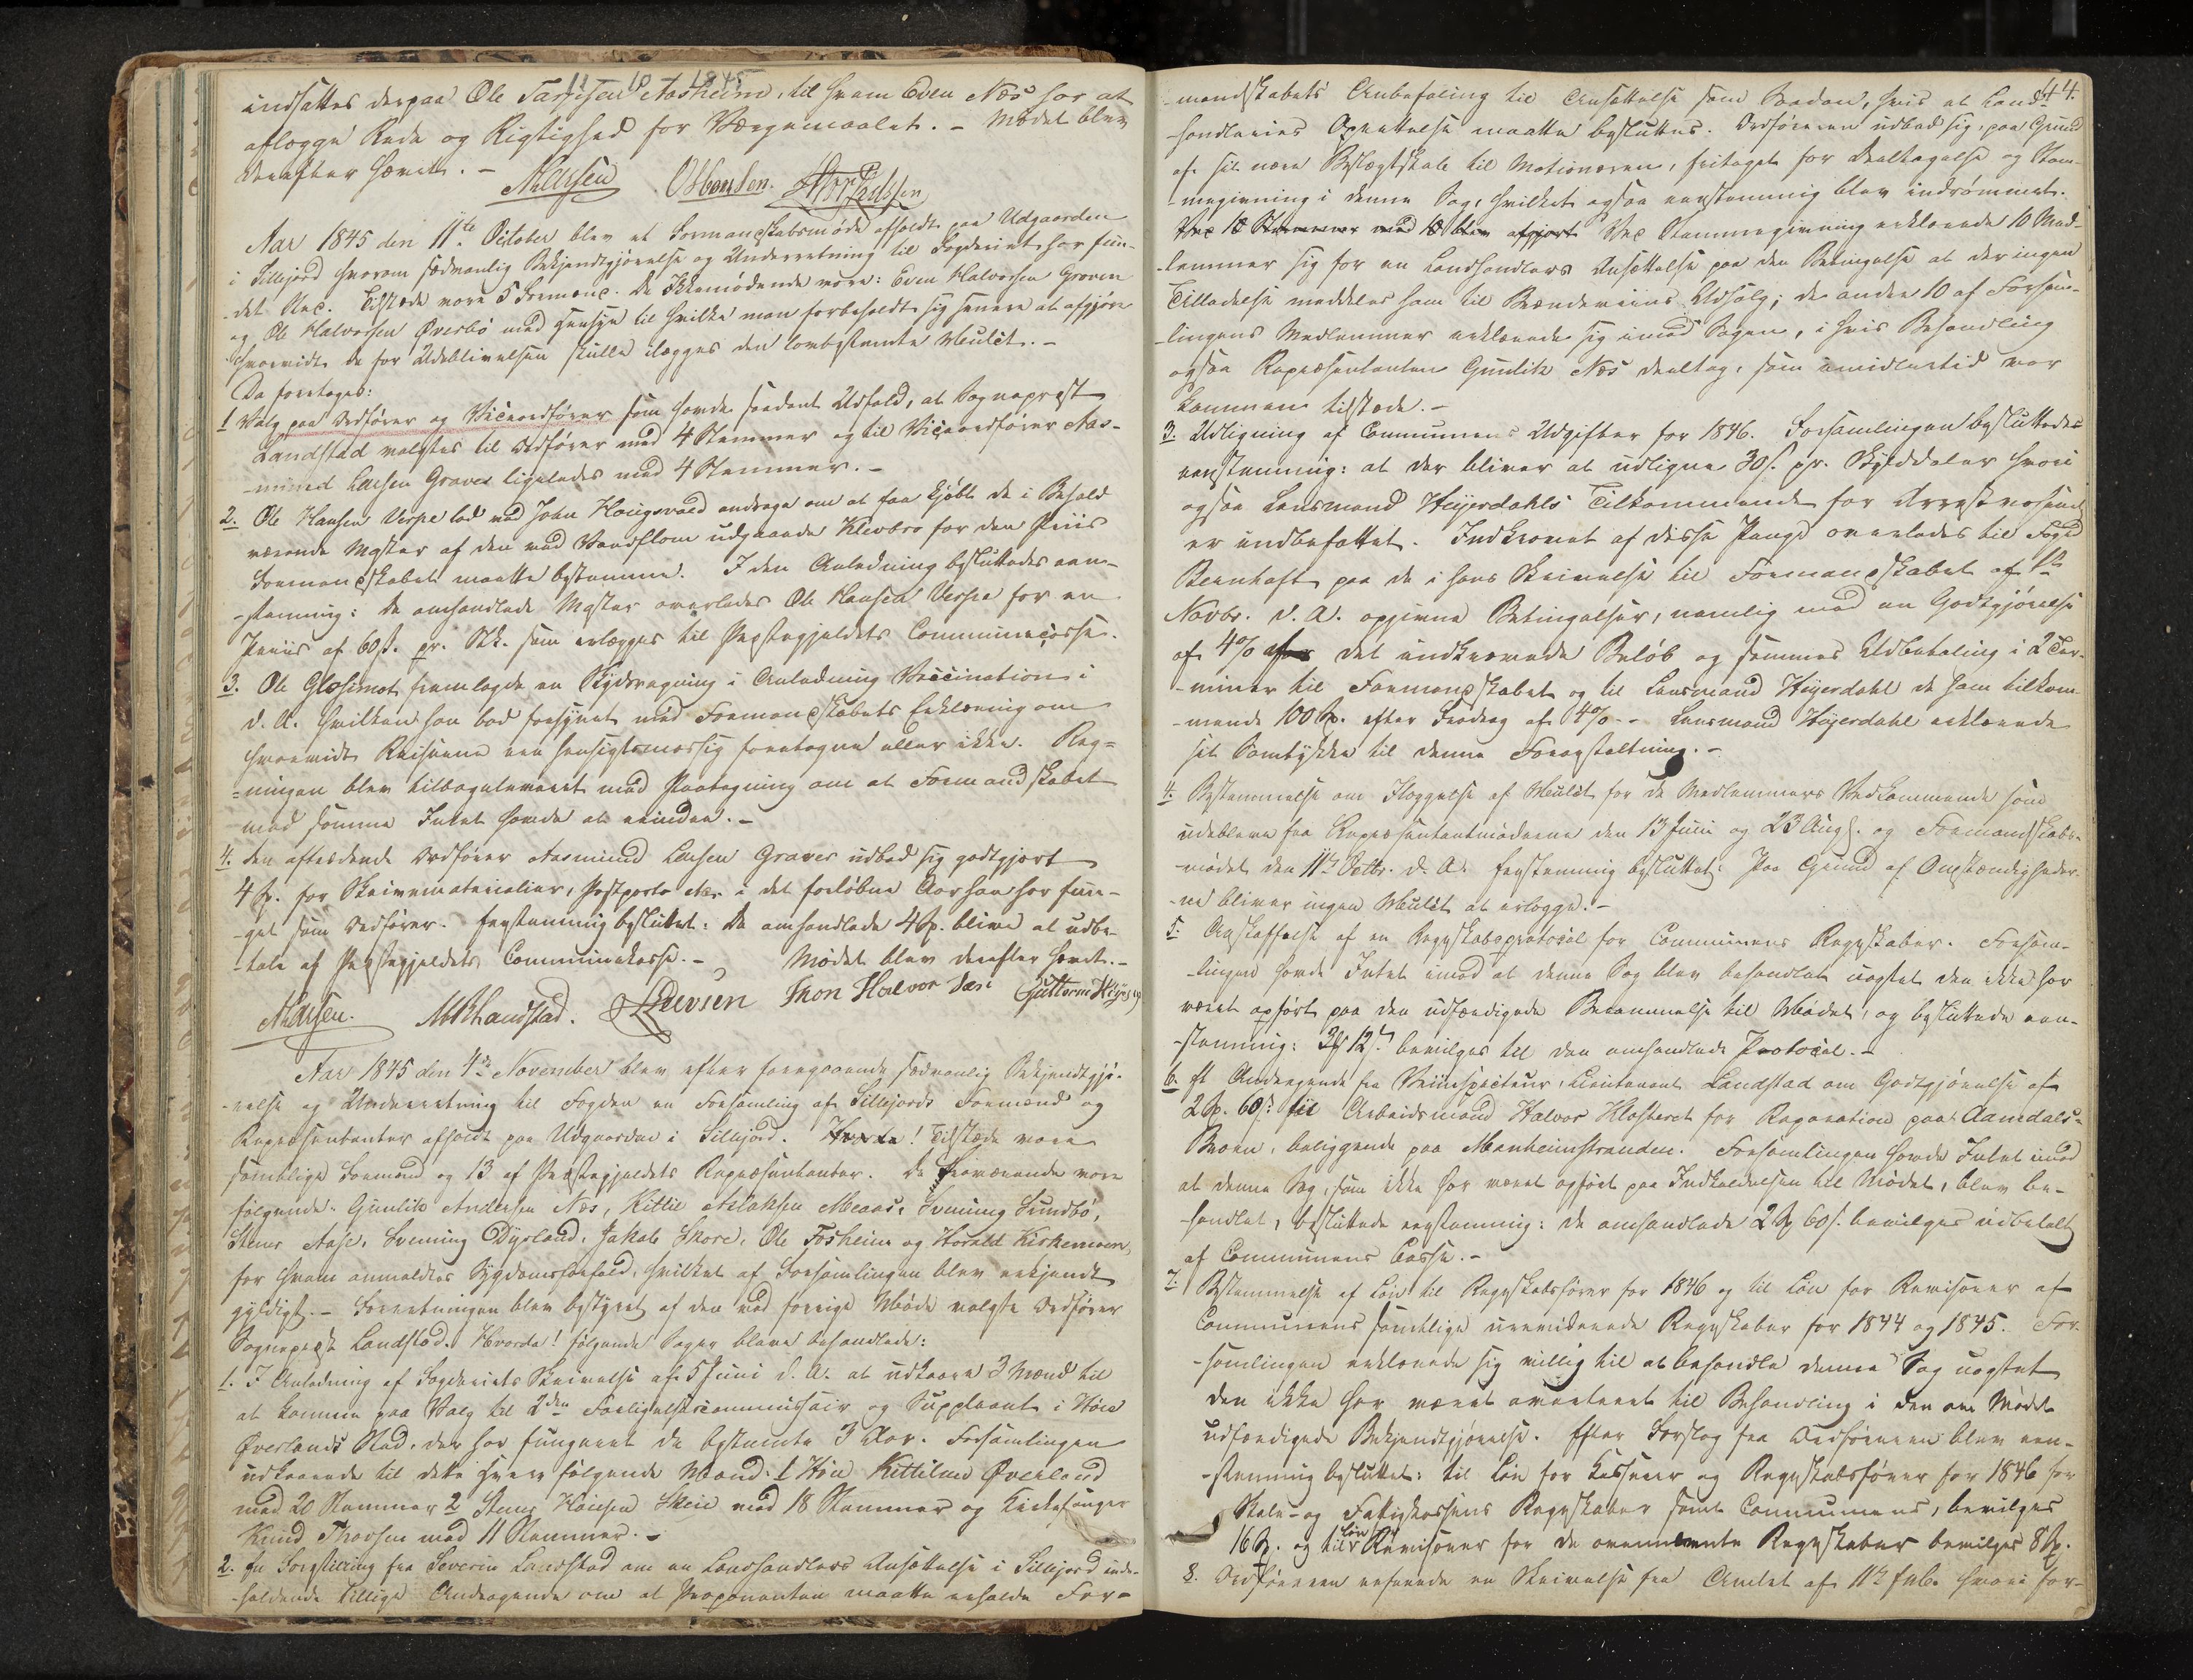 11 - 10 - 1845
indsattes derpaa Ole Tarjesen Aasheim, til hvem Even Næs har at
aflægge Rede og Rigtighed for Værgemaalet. - Mødet blev
derefter hævet. -
ALarsen
Aar 1845 den 11te October blev et Formandskabsmøde afholdt paa Udgaarden
i Sillejord hvorom sædvanlig Bekjendtgjørelse og Underretning til Fogderiet har fun-
det Sted. Tilstede vare 5 Formænd. De Ikkemødende vare: Even Halvorsen Groven
og Ole Halvorsen Øverbø med Hensyn til hvilke man forbeholdt sig senere at afgjøre
hvorvidt de for Udeblivelsen skulde ilægges den lovbestemte Mulct. -
Da foretoges:
1 Valg paa Ordfører og Viceordfører som havde saadant Udfald, at Sogneprest
Landstad valgtes til Ordfører med 4 Stemmer og til Viceordfører Aas-
-mund Larsen Graver ligeledes med 4 Stemmer. -
2. Ole Hansen Verpe lod ved John Haugsvald andrage om at faa kjøbt de i Behold
værende Master af den ved Vandflom udgaaede Klevbro for den Priis
Formandskabet maatte bestemme. I den Anledning besluttedes een-
-stemmig: De omhandlede Master overlades Ole Hansen Verpe for en
Priis af 60 s. pr. Stk. som erlægges til Præstegjeldets Communecasse.
3. Ole Glosimot fremlagde en Skydsregning i Anledning Vaccination i
d. A. hvilken han bad forsynet med Formandskabets Erklæring om
hvorvidt Reiserne ere hensigtsmæssig foretagne eller ikke. Reg-
=ningen blev tilbageleveret med Paategning om at Formandskabet
mod samme Intet havde at erindre. -
4. Den aftrædende Ordfører Aasmund Larsen Graver udbad sig godtgjort
4 Sp. for Skrivematerialier, Postporto etc. i det forløbne Aar han har fun-
-get som Ordfører. Eenstemmig besluttet: De omhandlede 4 Sp. blive at udbe-
-tale af Præstegjeldets Communekasse. - Mødet blev derefter hævet. -
ALarsen. MBLandstad. Jhon Halvor Søn Guttorm
Aar 1845 den 4de November blev efter foregaaende sædvanlig Bekjendtgjø-
-relse og Underretning til Fogden en Forsamling af Sillejords Formænd og
Repræsentanter afholdt paa Udgaarden i Sillejord. Hvorda! Tilstede vare
samtlige Formænd og 13 af Præstegjeldets Repræsentanter. De fraværende vare
følgende: Gunlik Andersen Næs, Kittil Aslaksen Meaas, Svenning Sundbø,
Stener Aase, Svenning Dyrland, Jakob Skore, Ole Tosheim og Harald Kirkemoen,
for hvem anmeldtes Sygdomsforfald, hvilket af Forsamlingen blev erkjendt
gyldigt. - Forretningen blev bestyret af den ved forrige Møde valgte Ordfører
Sogneprest Landstad. Hvorda! følgende Sager bleve behandlede:
1. I Anledning af Fogderiets Skrivelse af 5 Juni d. A. at udkaare 3 Mænd til
at komme paa Valg til 2den Forligelsescommissair og Suppleant i Høie
Øverlands Sted, der har fungeret de bestemte 3 Aar. Forsamlingen
udkaarede til dette Hverv følgende Mænd: 1 Høie Kittilsen Øverland
med 20 Stemmer 2 Stener Høiesen Skeie med 18 Stemmer og Kirkesanger
Knud Thovsen med 11 Stemmer. -
2. En Forestilling fra Severin Landstad om en Landhandlers Ansættelse i Sillejord inde-
-holdende tillige Andragende om at Proponenten maatte erholde For-
44.
-mandskabets Anbefaling til Ansættelse som Saadan, hvis et Land-
-handleries Oprettelse maatte besluttes. Ordføreren udbad sig, paa Grund
af sit nære Beslægtskab til Motionæren, fritaget for Deeltagelse og Stem-
-megivning i denne Sag, hvilket ogsaa eenstemmig blev indrømmet.
Ved 10 Stemmer mod 10 blev afgjort Ved Stemmegivning erklærede 10 Med-
-lemmer sig for en Landhandlers Ansættelse paa den Betingelse at der ingen
Tilladelse meddeles ham til Brændeviins Udsalg; de andre 10 af Forsam-
-lingens Medlemmer erklærede sig imod Sagen, i hvis Behandling
ogsaa Repræsentanten Gunlik Næs deeltog, som imidlertid var
kommen tilstede. -
3. Udligning af Communens Udgifter for 1846. Forsamlingen besluttede
eenstemmig: at der bliver at udligne 30 s. pr. Skylddaler hvori
ogsaa Lensmand Heyerdahls Tilkommende for Arrestvæsenet
er indbefattet. Indkrævet af disse Penge overlades til Foged
Bernhoft paa de i hans Skrivelse til Formandskabet af 1ste
Novbr. d. A. opgivne Betingelser, nemlig mod en Godtgjørelse
af 4% af det indkrævede Beløb og sammes Udbetaling i 2 Ter-
-miner til Formandskabet og til Lensmand Heyerdahl de ham tilkom-
-mende 100 Sp. efter Fradrag af 4%. - Lensmand Heyerdahl erklærede
sit Samtykke til denne Foranstaltning. -
4. Bestemmelse om Ilæggelse af Mulct for de Medlemmers Vedkommende som
udebleve fra Repræsentantmøderne den 13 Juni og 23 Aug. og Formandskabs-
-mødet den 11te Octbr. d. A. Eenstemmig besluttet: Paa Grund af Omstændigheder-
-ne bliver ingen Mulct at erlægge. -
5. Anskaffelse af en Regnskabsprotocol for Communens Regnskaber. Forsam-
-lingen havde Intet imod at denne Sag blev behandlet uagtet den ikke har
været opført paa den udfærdigede Berammelse til Mødet, og besluttede een-
-stemmig: 12 s. bevilges til den omhandlede Protocol. -
6. Et Andragende fra Veiinspecteur, Lieutenant Landstad om Godtgjørelse af
2 Sp. 60 s. til Arbeidsmand Halvor Klosteret for Reparation paa Aamdals-
Broen, beliggende paa Manheimstranden. Forsamlingen havde Intet imod
at denne Sag, som ikke har været opført paa Indkaldelsen til Mødet, blev be-
-handlet, besluttede eenstemmig: de omhandlede 2 Sp 60 s. bevilges udbetalt
af Communens Casse. -
7. Bestemmelse af Løn til Regnskabsfører for 1846 og til Løn for Revisorer af
Communens samtlige ureviderede Regnskaber for 1844 og 1845. For-
-samlingen erklærede sig villig til at behandle denne Sag uagtet
den ikke har været averteret til Behandling i den om Mødet
udfærdigede Bekjendtgjørelse. Efter Forslag fra Ordføreren blev een-
-stemmig besluttet: til Løn for Kasserer og Regnskabsfører for 1846 for
Skole- og Fattigkassens Regnskaber samt Communens, bevilges
16 Sp. og til Løn for Revisorer for de ovennævnte Regnskaber bevilges 8 Sp.
8. Ordføreren oplæste en Skrivelse fra Amtet af 11te Feb. hvori for-